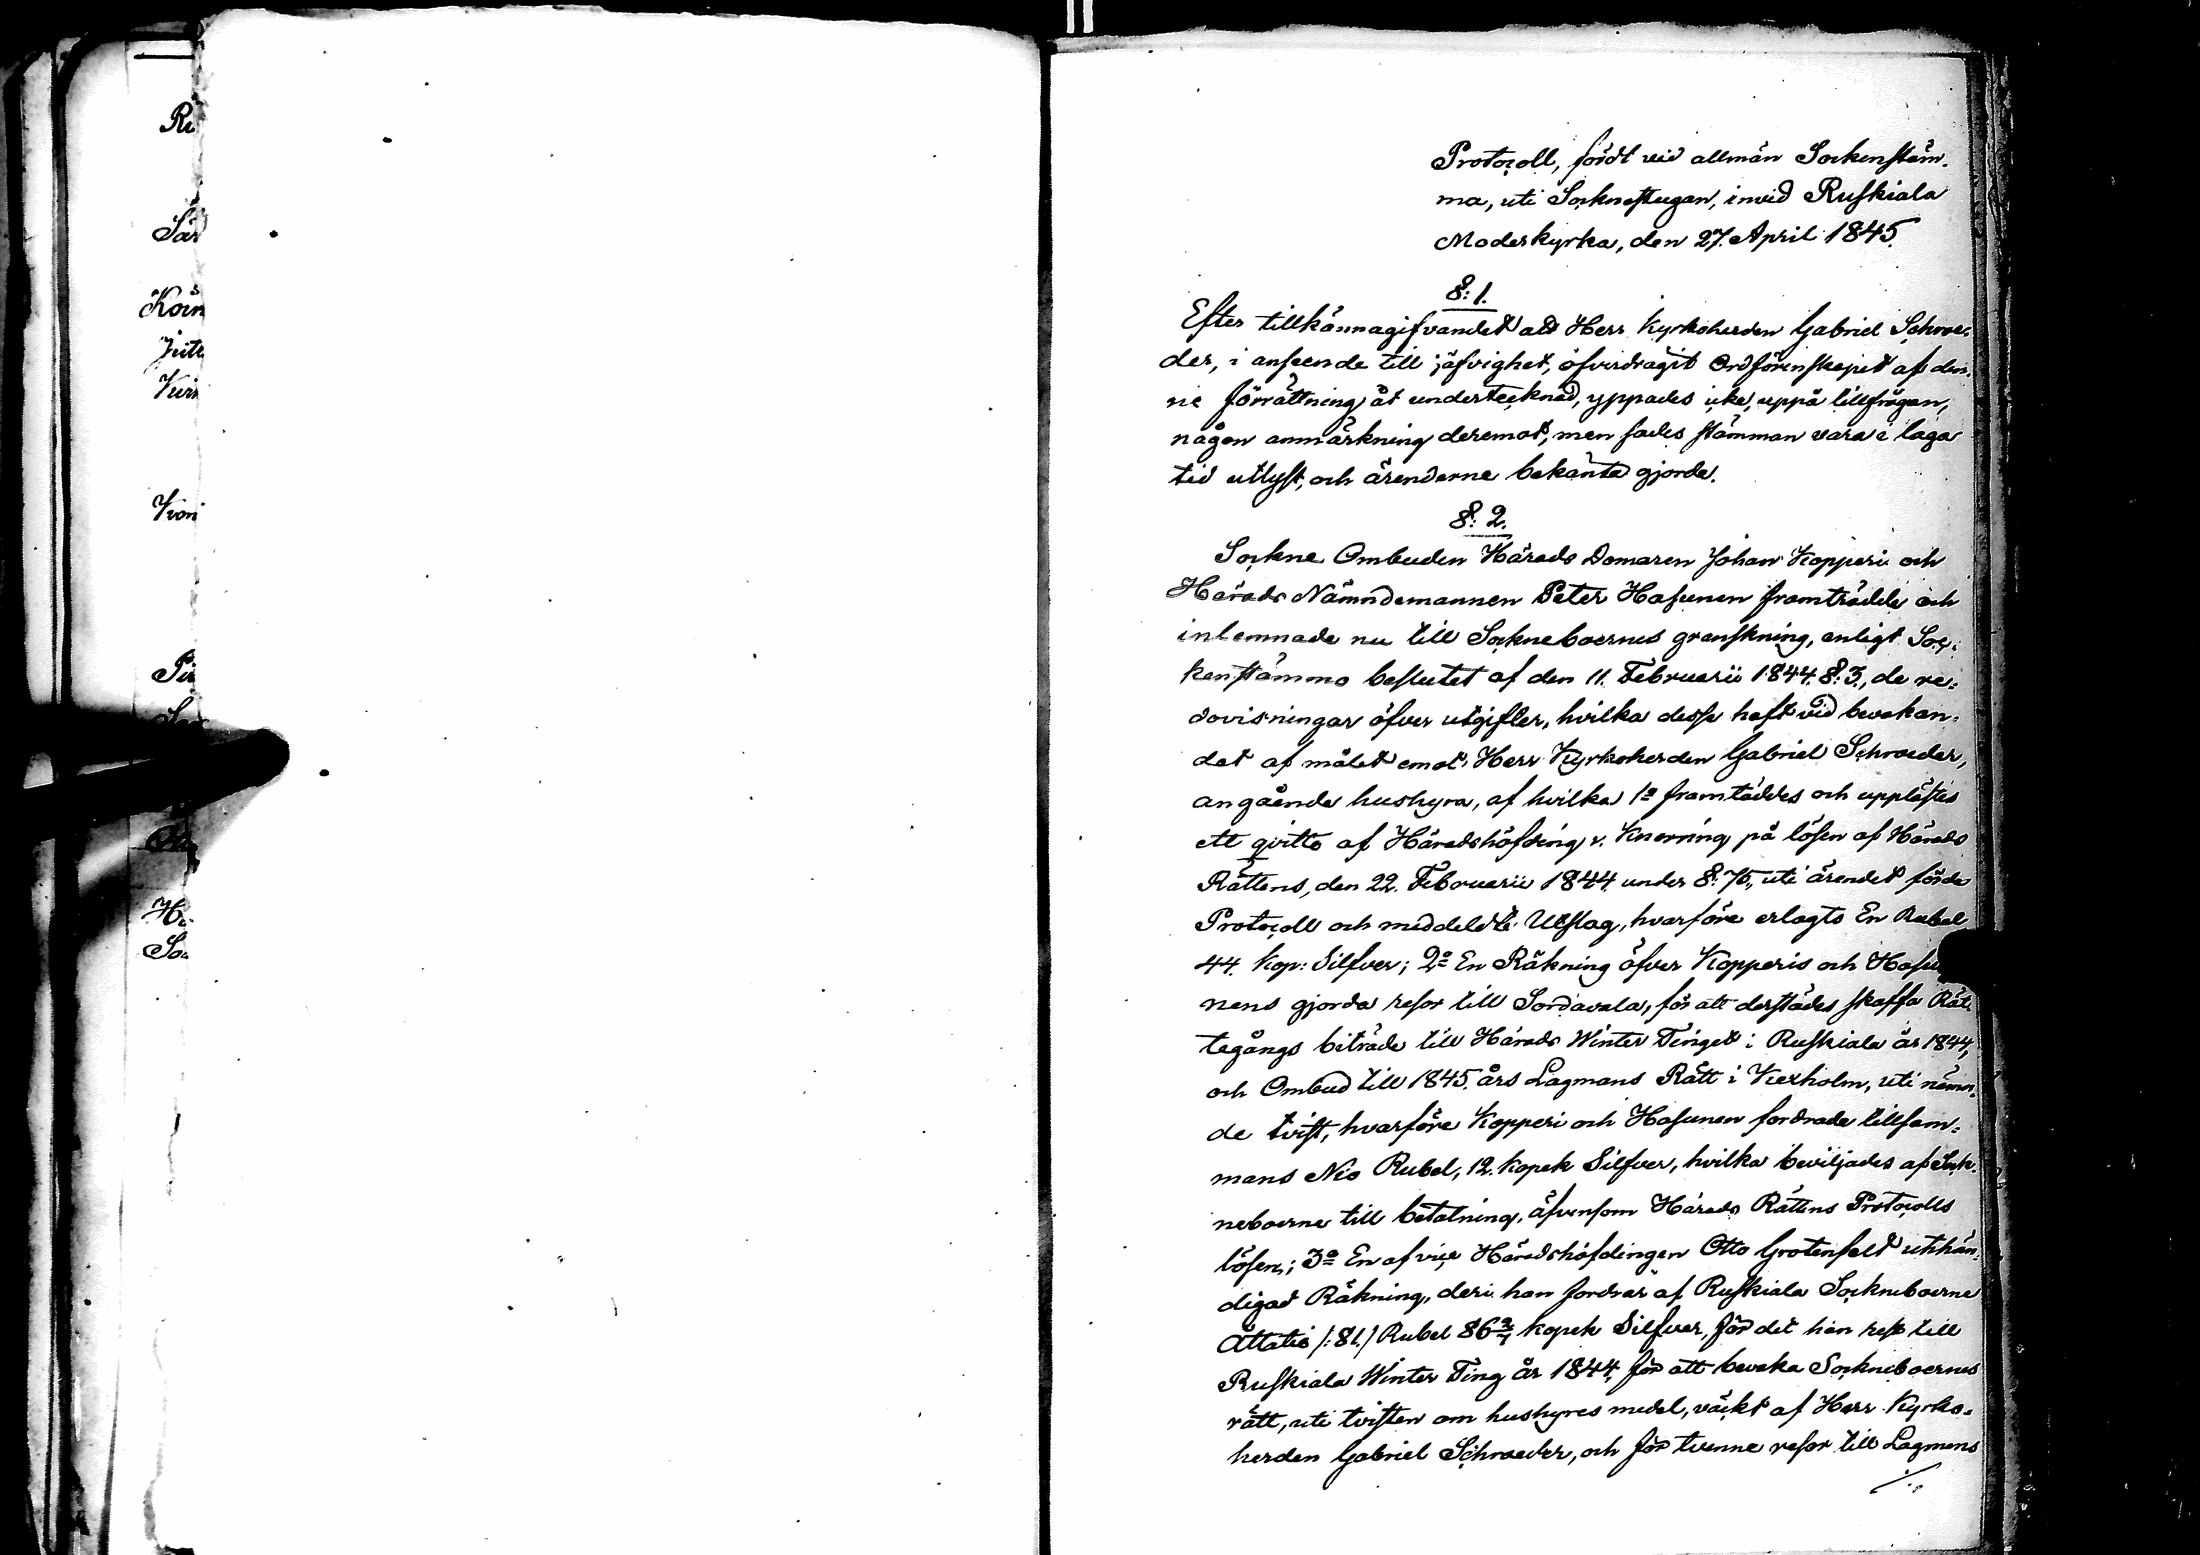 Ri
Sår
Koin
Juit
Kuir
Kon
Pi
Protocoll, fördt vid allmän Sockenstäm-
ma, uti Socknestugan, invid Ruskiala
Moderkyrka, den 27. April 1845.
§: 1.
Efter tillkännagifvandet att Herr Kyrkoherden Gabriel Schroe-
der, i anseende till jäfvighet, öfverdragit Ordförenskapet af den-
ne förrättning åt undertecknad, yppades icke, uppå tillfrågan,
någon anmärkning deremot, men sades stämman vara i laga
tid utlyst, och ärenderne bekanta gjorde.
§: 2.
Sockne Ombuden Härads Domaren Johan Kopperi och
Härads Nämndemannen Peter Hasunen framträdde och
inlemnade nu till Sockneboernes granskning, enligt Soc-
kenstämmo beslutet af den 11. Februarii 1844. §: 3., de re-
dovisningar öfver utgifter, hvilka desse haft vid bevakan-
det af målet emot Herr Kyrkoherden Gabriel Schroeder,
angående hushyra, af hvilka 1o framtéddes och upplästes
ett qvitto af Häradshöfding v. Knorring på lösen af Härads
Rättens, den 22. Februarii 1844 under §: 75., uti ärendet förde
Protocoll och meddeldte Utslag, hvarföre erlagts En Rubel
44. Kop: Silfver; 2o En Räkning öfver Kopperis och Hasu
nens gjorda resor till Sordavala, för att derstädes skaffa Rät-
tegångs biträde till Härads Winter Tinget i Ruskiala år 1844,
och Ombud till 1845. års Lagmans Rätt i Kexholm, uti nämn-
de tvist, hvarföre Kopperi och Hasunen fordrade tillsam-
mans Nio Rubel, 12. Kopek Silfver, hvilka beviljades af Sock-
neboerne till betalning, äfvensom Härads Rättens Protocolls
lösen; 3o En af vice Häradshöfdingen Otto Grotenfelt uthän-
digad Räkning, deri han fordrar af Ruskiala Sockneboerne
Åttatio /:81./ Rubel 86 2/7 kopek Silfver, för det han rest till
Ruskiala Winter Ting år 1844, för att bevaka Sockneboernes
rätt, uti tvisten om hushyres medel, väckt af Herr Kyrko-
herden Gabriel Schroeder, och för tvenne resor till Lagmans